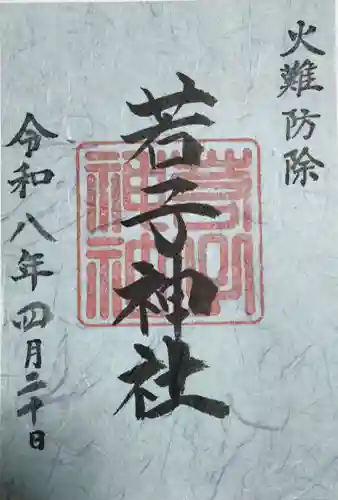 火難防除
若子神社
令和八年四月二十日